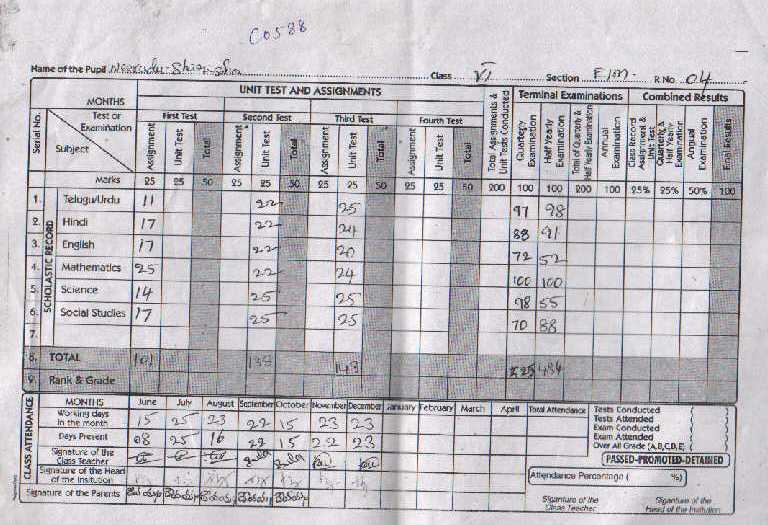 C0588
Name of the Pupil Class VI Section E/M R.No. 04
UNIT TEST AND ASSIGNMENTS Terminal Examinations Combined Results
MONTHS
Serial No. Test or Examination First Test Second Test Third Test Fourth Test Total Assignments & Unit Tests Conducted Quarterly Examination Half Yearly Examination Total of Quarterly & Half Yearly Examination Annual Examination Class Record Assignment & Unit Test Quarterly & Half Yearly Examination Annual Examination Final Results
Subject Assignment Unit Test Total Assignment Unit Test Total Assignment Unit Test Total Assignment Unit Test Total
Marks 25 25 50 25 25 50 25 25 50 25 25 50 200 100 100 200 100 25% 25% 50% 100
SCHOLASTIC RECORD
1. Telugu/Urdu 11 22 25 97 98
2. Hindi 17 22 24 88 91
3. English 17 22 20 72 52
4. Mathematics 25 22 24 100 100
5. Science 14 25 25 98 55
6. Social Studies 17 25 25 70 88
7.
8. TOTAL 101 138 143 525 484
9. Rank & Grade
CLASS ATTENDANCE
MONTHS June July August September October November December January February March April Total Attendance
Working days in the month 15 25 23 22 15 23 23
Days Present 08 25 16 22 15 22 23
Signature of the Class Teacher
Signature of the Head of the Insitution
Signature of the Parents
Tests Conducted ( )
Tests Attended ( )
Exam Conducted ( )
Exam Attended ( )
Over All Grade (A,B,C,D,E) ( )
PASSED-PROMOTED-DETAINED
Attendance Percentage ( %)
Signature of the Class Teacher
Signature of the Head of the Institution